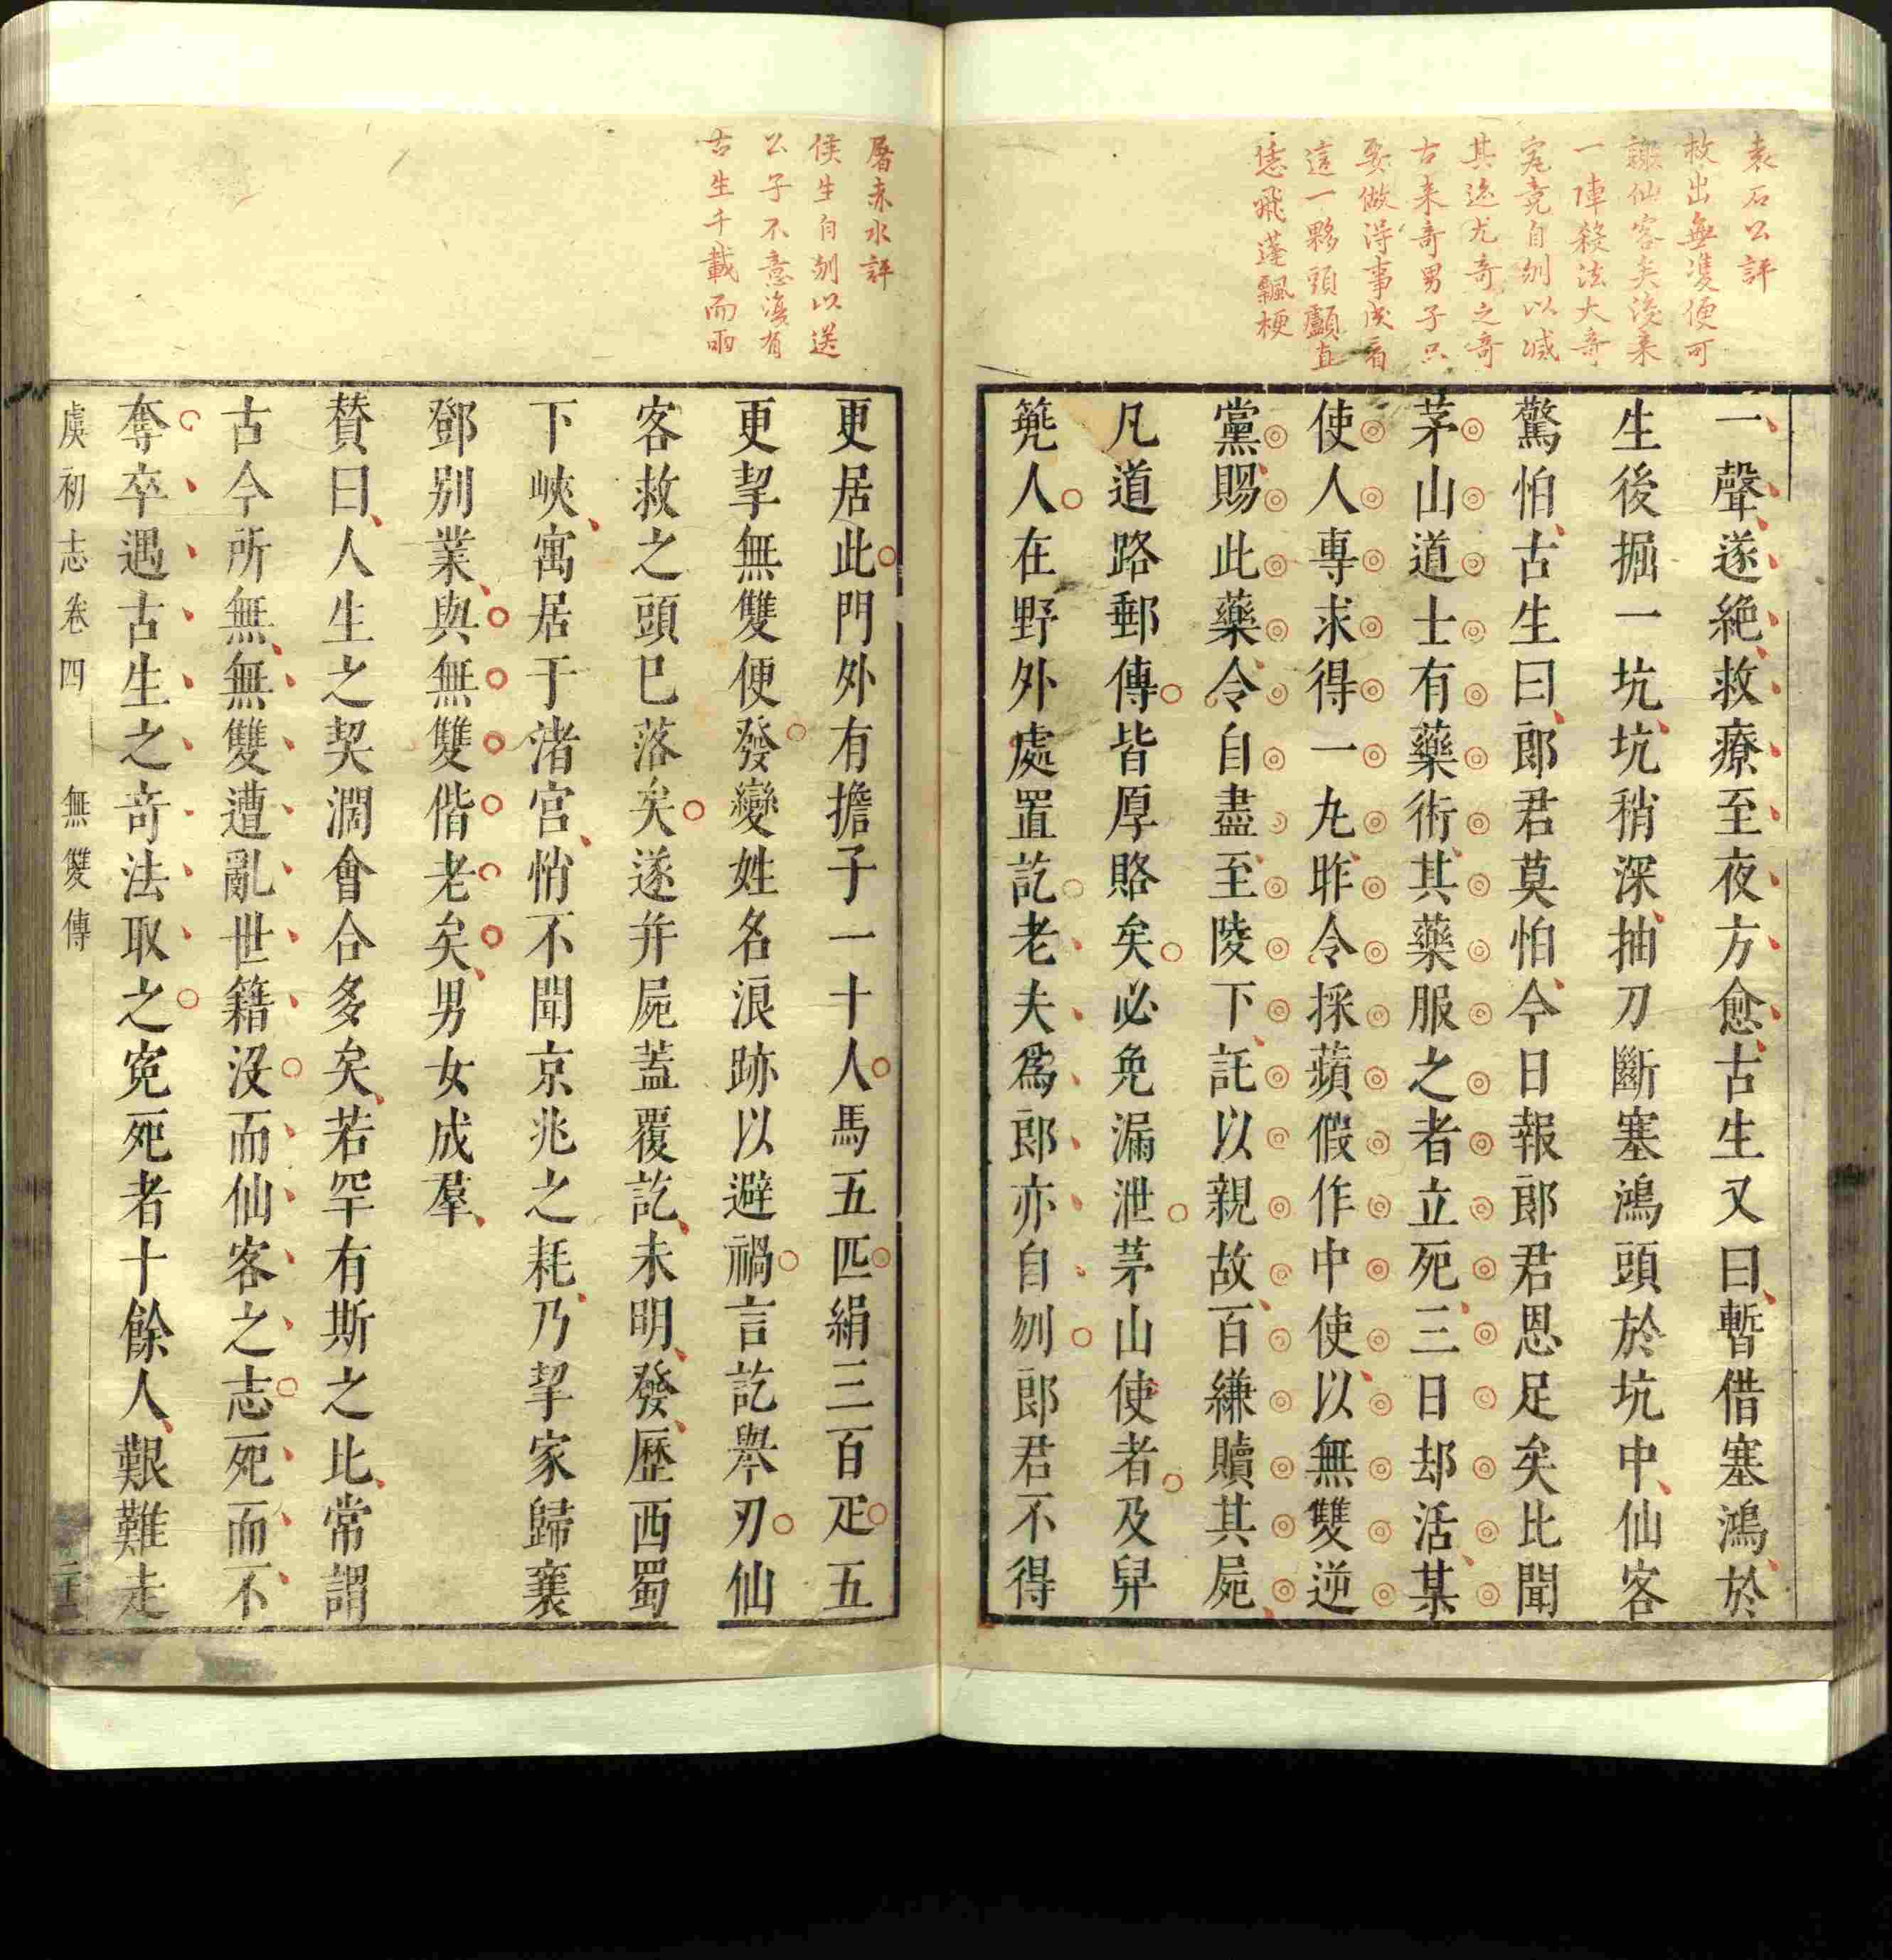 袁石公評
救出無䨇便可
謝仙客矣後来
一陣殺法大奇
究竟自刎以滅
其迹尤奇之奇
古来奇男子只
要做得事成看
這一夥頭顱直
恁飛蓬飄梗
一聲遂絶救療至夜方愈古生又曰暫借塞鴻於
生後掘一坑坑稍深抽刀斷塞鴻頭於坑中仙客
驚怕古生曰郎君莫怕今日報郎君恩足矣比聞
茅山道士有藥術其藥服之者立死三日却活某
使人專求得一丸昨令採蘋假作中使以無雙逆
黨賜此藥令自盡至陵下託以親故百縑贖其屍
凡道路郵傳皆厚賂矣必免漏泄茅山使者及舁
篼人在野外處置訖老夫爲郎亦自刎郎君不得
屠赤水評
侯生自刎以送
公子不意復有
古生千載而兩
更居此門外有擔子一十人馬五匹絹三百疋五
更挈無雙便發變姓名浪跡以避禍言訖舉刃仙
客救之頭已落矣遂并屍蓋覆訖未明發歷西蜀
下峽寓居于渚宮悄不聞京兆之耗乃挈家歸襄
鄧别業與無雙偕老矣男女成羣
賛曰人生之契濶會合多矣若罕有斯之比常謂
古今所無無雙遭亂世籍沒而仙客之志死而不
奪卒遇古生之奇法取之冤死者十餘人艱難走
虞初志卷四 無䨇傳